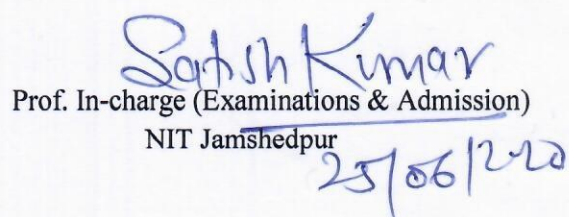 Satish Kumar
Prof. In-charge (Examinations & Admission)
NIT Jamshedpur
25/06/2020